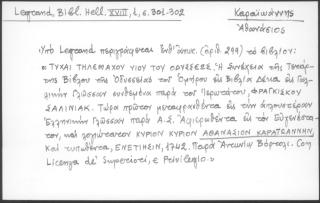 Legrand, Bibl. Hell. XVIII, 1, σ. 301-302
Καραϊωάννης
Ἀθανάσιος
Ὑπὸ Legrand περιγράφεται ἐνθ' ἄνωτ. (ἀριθ. 299) τὸ βιβλίον:
"ΤΥΧΑΙ ΤΗΛΕΜΑΧΟΥ ΥΙΟΥ ΤΟΥ ΟΔΥΣΣΕΩΣ. Ἢ Συνέχεια τῆς Τετάρ-
της Βίβλου τῆς Ὀδυσσείας τοῦ Ὁμήρου εἰς Βιβλία Δέκα εἰς Γαλ-
λικὴν Γλῶσσαν συνθεμένα παρὰ τοῦ Ἱερωτάτου, ΦΡΑΓΚΙΣΚΟΥ
ΣΑΛΙΝΙΑΚ. Τώρα πρῶτον μεταφρασθέντα εἰς τὴν ἁπλουστέραν
Ἑλληνικὴν Γλῶσσαν παρὰ Α.Σ. Ἀφιερωθέντα εἰς τὸν Εὐγενέστα-
τον, καὶ λογιώτατον ΚΥΡΙΟΝ ΚΥΡΙΟΝ ΑΘΑΝΑΣΙΟΝ ΚΑΡΑΙΩΑΝΝΗΝ,
Καὶ τυπωθέντα, ΕΝΕΤΙΗΣΙΝ, 1742. Παρὰ Ἀντωνίῳ Βόρτολι. Con
Licenza de' Superiori, e Privilegio."